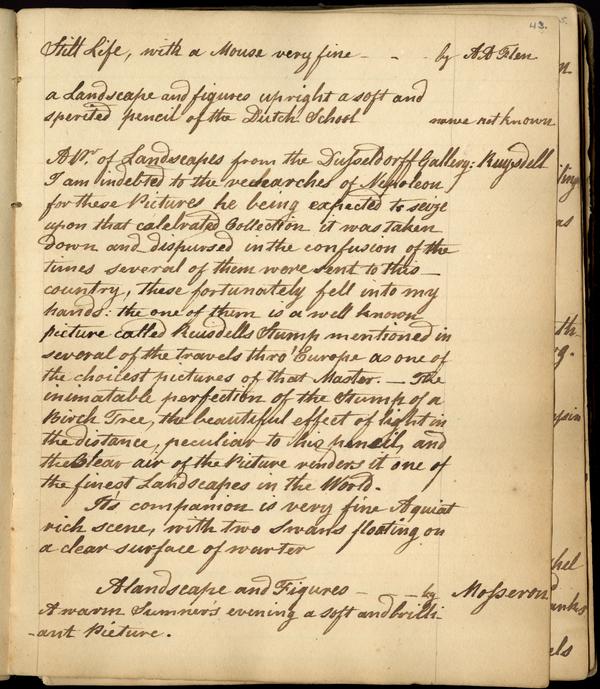 43.
Still Life, with a Mouse very fine - - - by A D Flen
a Landscape and figures upright a soft and
sperited pencil of the Dutch School name not known
A Pr. of Landscapes from the Dusseldorff Gallery: Ruysdell
I am indebted to the researches of Napoleon
for these Pictures he being expected to seize
upon that calebrated Collection it was taken
down and dispursed in the confusion of the
times several of them were sent to this
country, these fortunately fell into my
hands: the one of them is a well known
picture called Ruisdells Stump mentioned in
several of the travels thro' Europe as one of
the choicest pictures of that Master. — The
inimatable perfection of the Stump of a
Birch Tree, the beautiful effect of light in
the distance, peculiar to his pencil, and
the Clear air of the Picture rinders it one of
the finest Landscapes in the World.
It's companion is very fine A quiat
rich scene, with two Swans floating on
a clear surface of warter
A landscape and Figures - - - by Mosseron
A warm Summer's evening a soft and brilli-
-ant Picture.